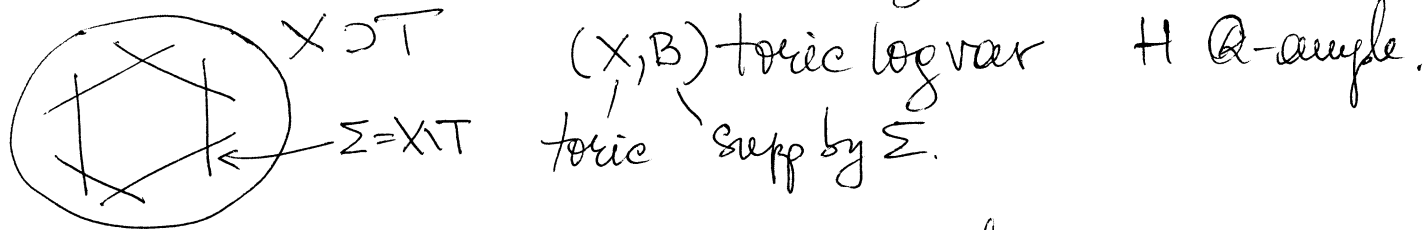 X ⊃ T (X,B) toric log var H Q-ample.
Σ = X\T toric supp by Σ.